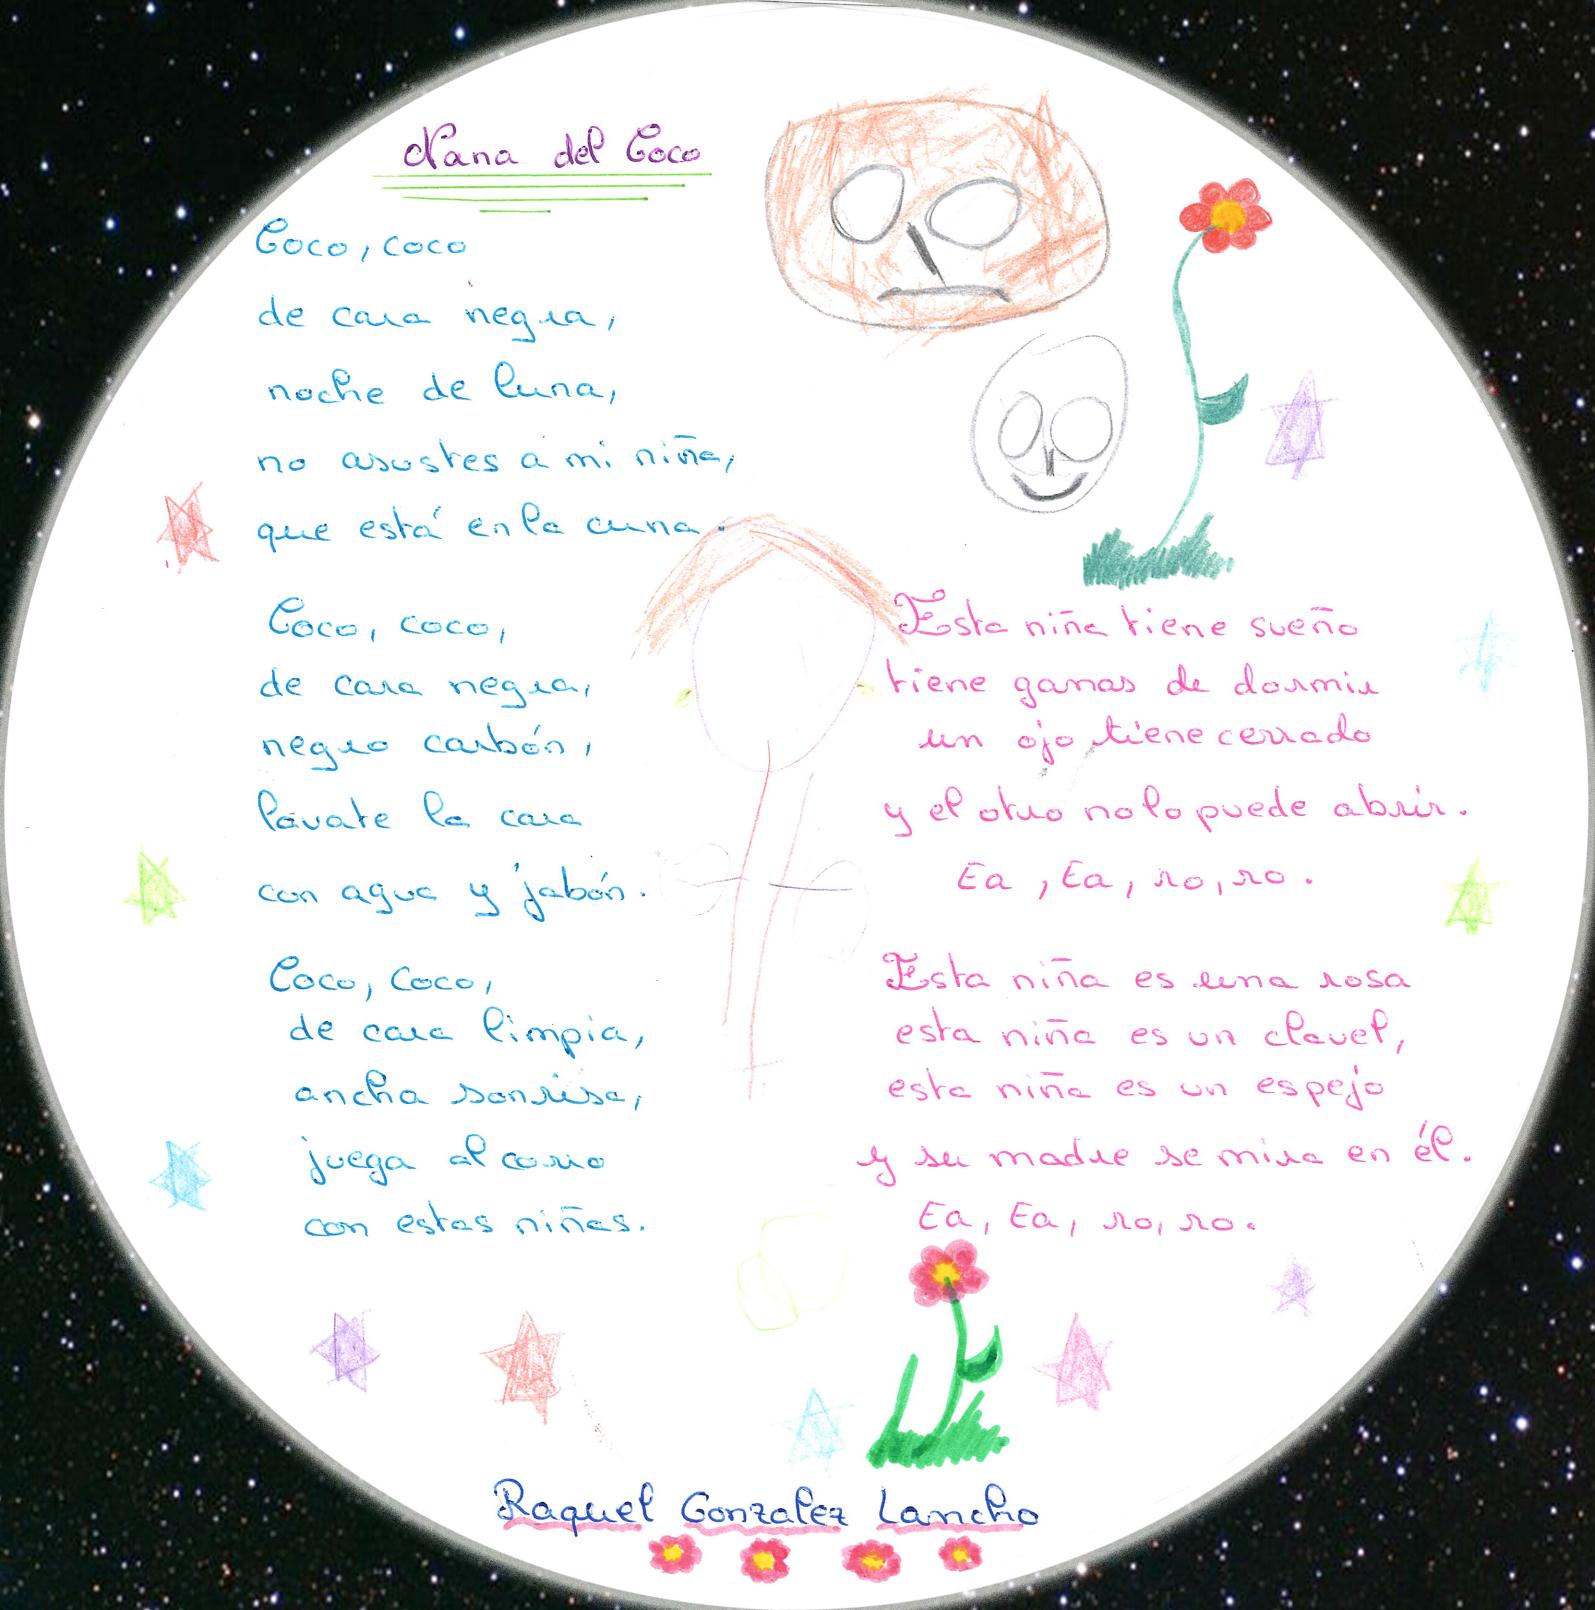 Nana del Coco
Coco, coco
de cara negra,
noche de luna,
no asustes a mi niña,
que está en la cuna.
Coco, coco,
de cara negra,
negro carbón,
lávate la cara
con agua y jabón.
Coco, Coco,
de cara limpia,
ancha sonrisa,
juega al corro
con estas niñas.
Esta niña tiene sueño
tiene ganas de dormir
un ojo tiene cerrado
y el otro no lo puede abrir.
Ea, Ea, ro, ro.
Esta niña es una rosa
esta niña es un clavel,
esta niña es un espejo
y su madre se mira en él.
Ea, Ea, ro, ro.
Raquel Gonzalez Lancho